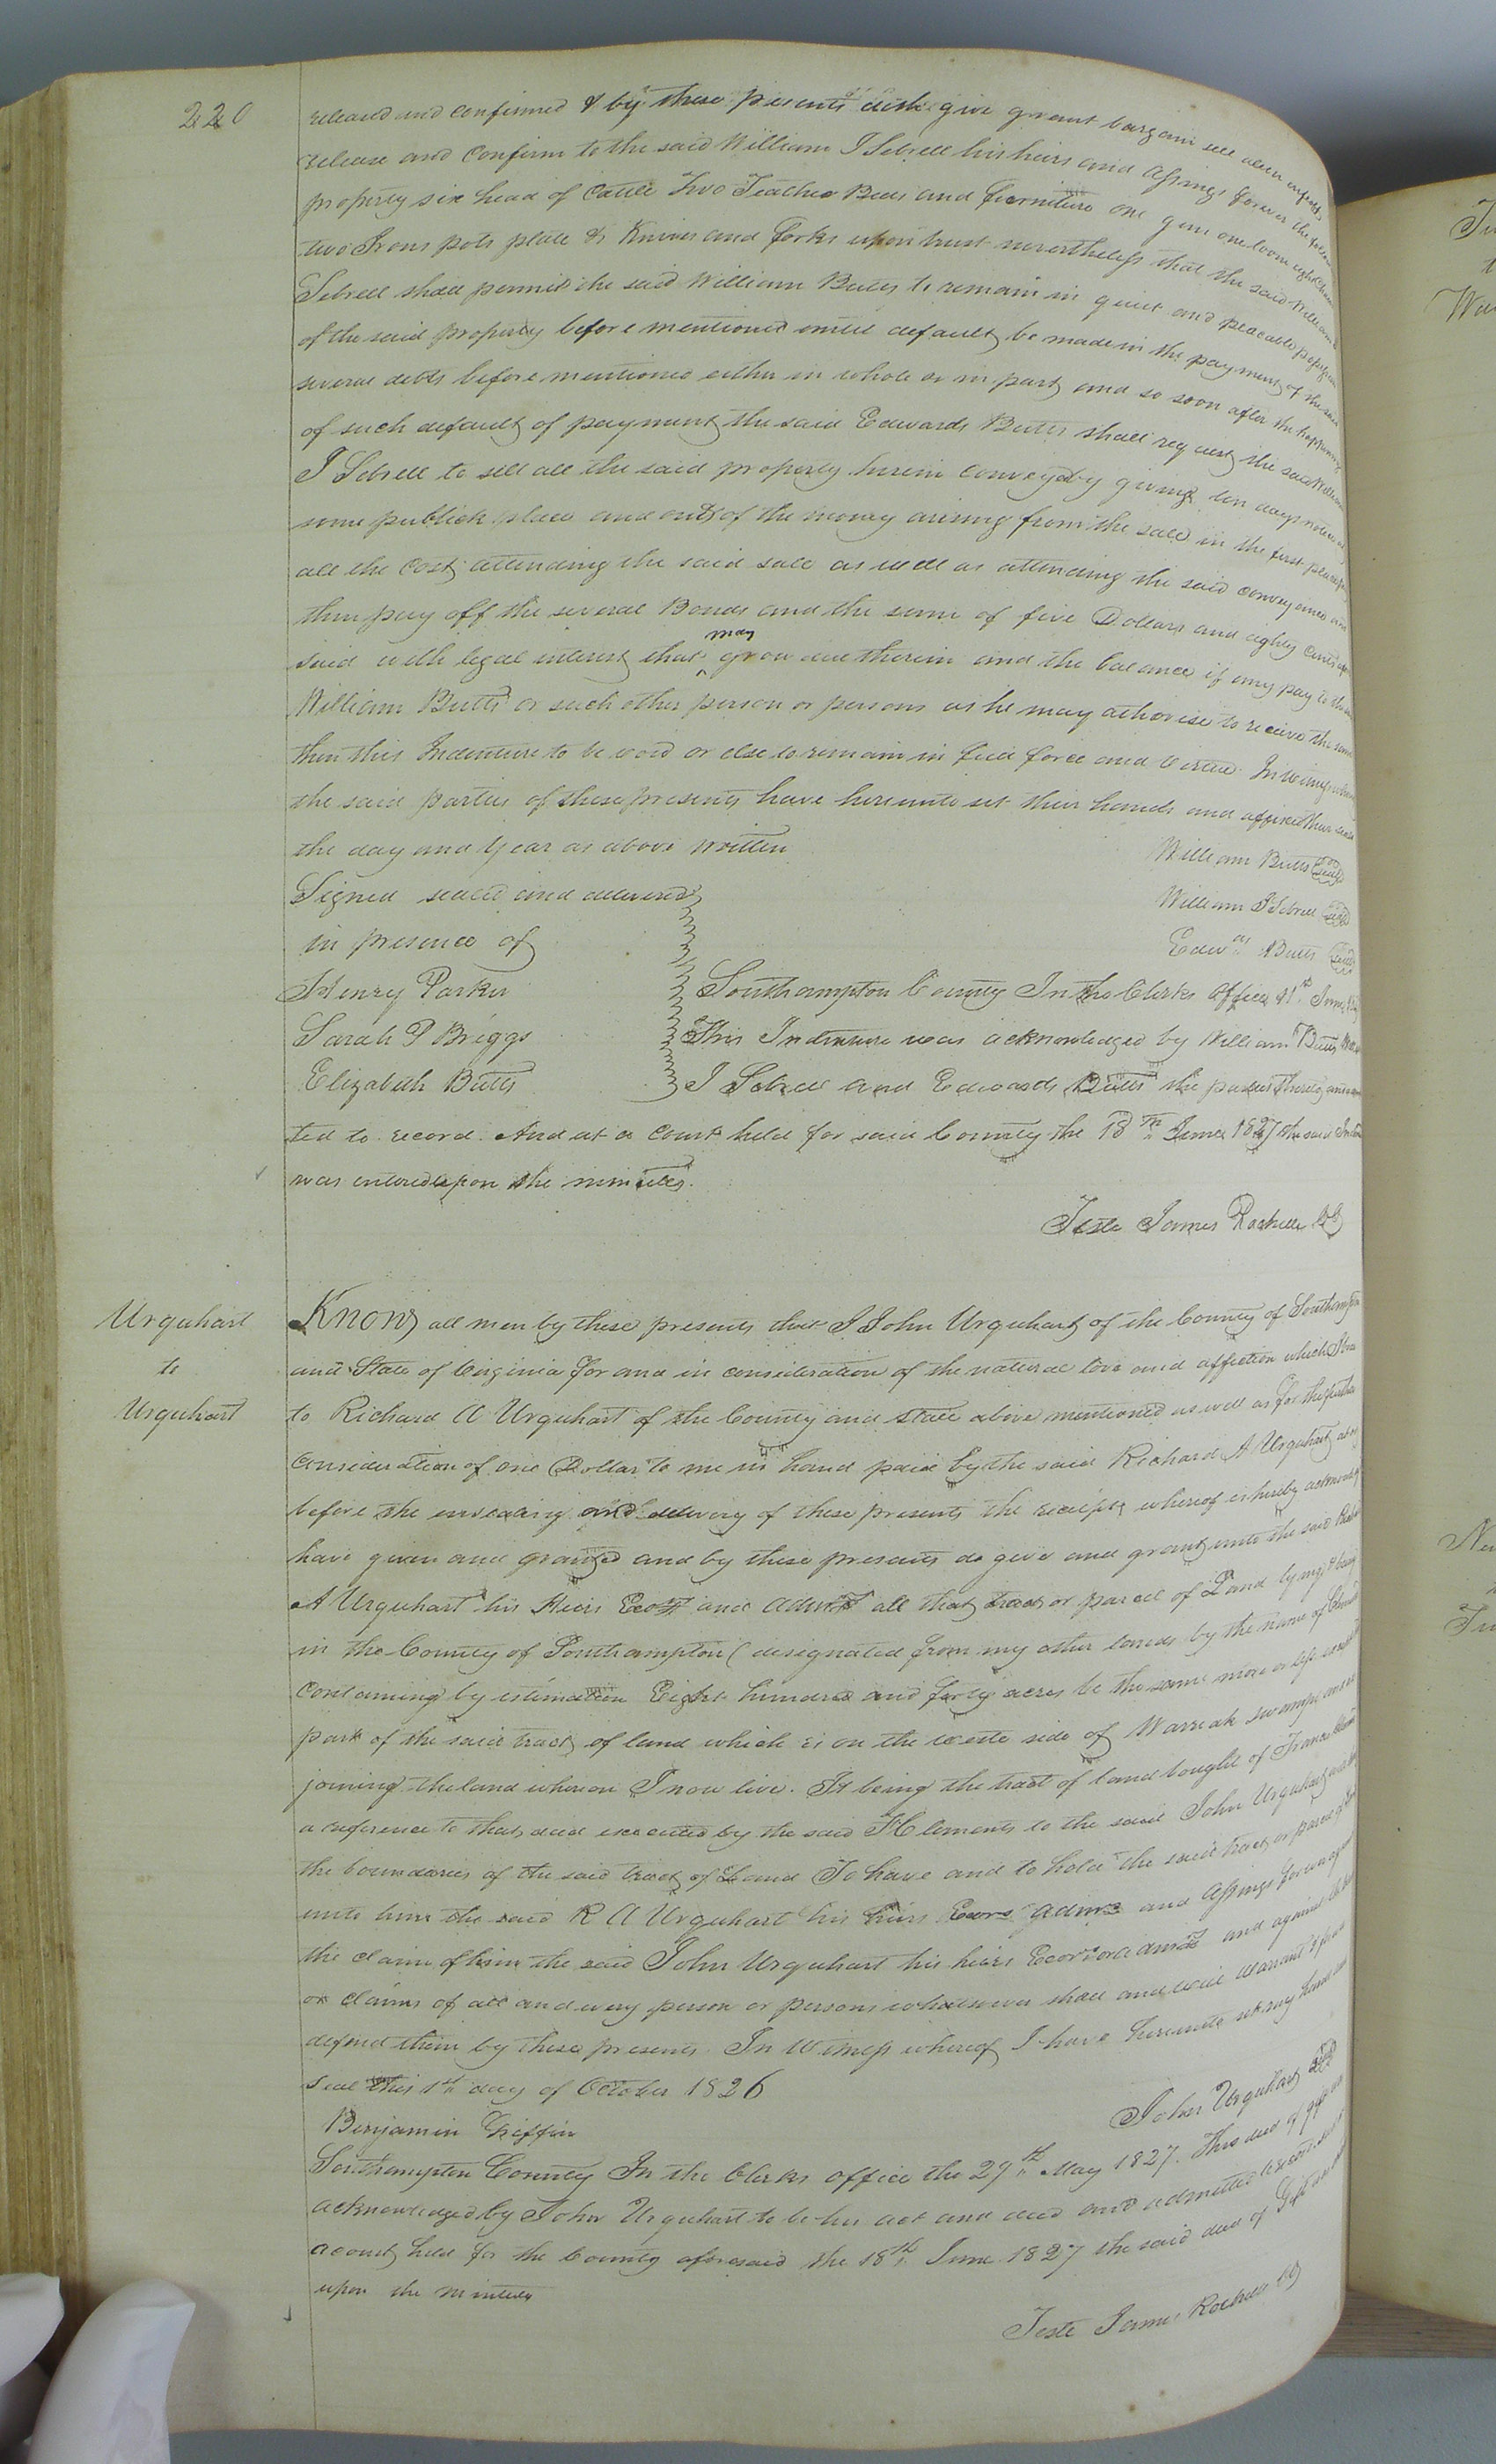 220
released and confirmed & by these presents doth give grant bargain sell alien
release and confirm to the said William J Sebrell his heirs and Assings forever the
property six head of Cattle Two Feather Beds and furniture one gun one loom eight Chairs
two Irons pots plate & Knives and forks upon trust nevertheless that the said William
Sebrell shall permit the said William Butts to remain in quiet and peaceable possession
of the said property before mentioned untill default be made in the payment of the said
several debts before mentioned either in whole or in part and so soon after the happening
of such default of payment the said Edwards Butts shall request the said William
J Sebrell to sell all the said property herein conveyd by giving ten days notice at
some publick place and out of the money arising from the sale in the first place pay
all the Cost attending the said sale as well as attending the said conveyance and
then pay off the several Bonds and the sum of five Dollars and eighty cents
said with legal interest that may grow due therein and the balance if any pay to the
William Butts or such other person or persons as he may athorise to receive the same
then this Indenture to be void or else to remain in full force and Virtue. In witness whereof
the said parties of these presents have hereunto set their hands and affixed their seals
the day and year as above written
William Butts seal
Signed sealed and delivered
William J Sebrell seal
in presence of
Edwds Butts seal
Henry Parker
Southampton County In the Clerks office 1st June
Sarah P Briggs
This Indenture was acknowledged by William Butts
Elizabeth Butts
J Sebrell and Edwards Butts the parties thereto
ted to record. And at a Court held for said County the 18th June 1827 the said
was entered upon the minutes.
Teste James Rochelle CC
Urquhart
to
Urquhart
Know all men by these presents that I John Urquhart of the County of Southampton
and State of Virginia for and in consideration of the natural love and affection which I
to Richard A Urquhart of the County and State above mentioned as well as for the further
consideration of one Dollar to me in hand paid by the said Richard A Urquhart at or
before the ensealing and delivery of these presents the receipt whereof is hereby acknowledged
have given and granted and by these presents do give and grant unto the said Richd
A Urquhart his Heirs Exors and Admrs all that tract or parcel of Land lying & being
in the County of Southampton (designated from my other lands by the name of
containing by estimation Eight hundred and forty acres be the same more or less
part of the said tract of land which is on the weste side of Warreak swamp
joining the land whereon I now live. It being the tract of land bought of
a reference to that deed executed by the said Clements to the said John Urquhart
the boundaries of the said tract of Land To have and to hold the said tract or parcel of
unto him the said R A Urquhart his heirs Exors Admrs and Assings forever
the claim of him the said John Urquhart his heirs Exors or admrs and against
or claims of all and every person or persons whatsoever shall and will warrant &
defend them by these presents. In Witness whereof I have hereunto set my hand and
seal this 1st day of October 1826
John Urquhart seal
Benjamin Griffin
Southampton County In the Clerks office the 29th May 1827. This deed of gift was
acknowledged by John Urquhart to be his act and deed and admitted to record
a court held for the County aforesaid the 18th June 1827 the said deed of Gift
upon the minutes
Teste James Rochelle CC